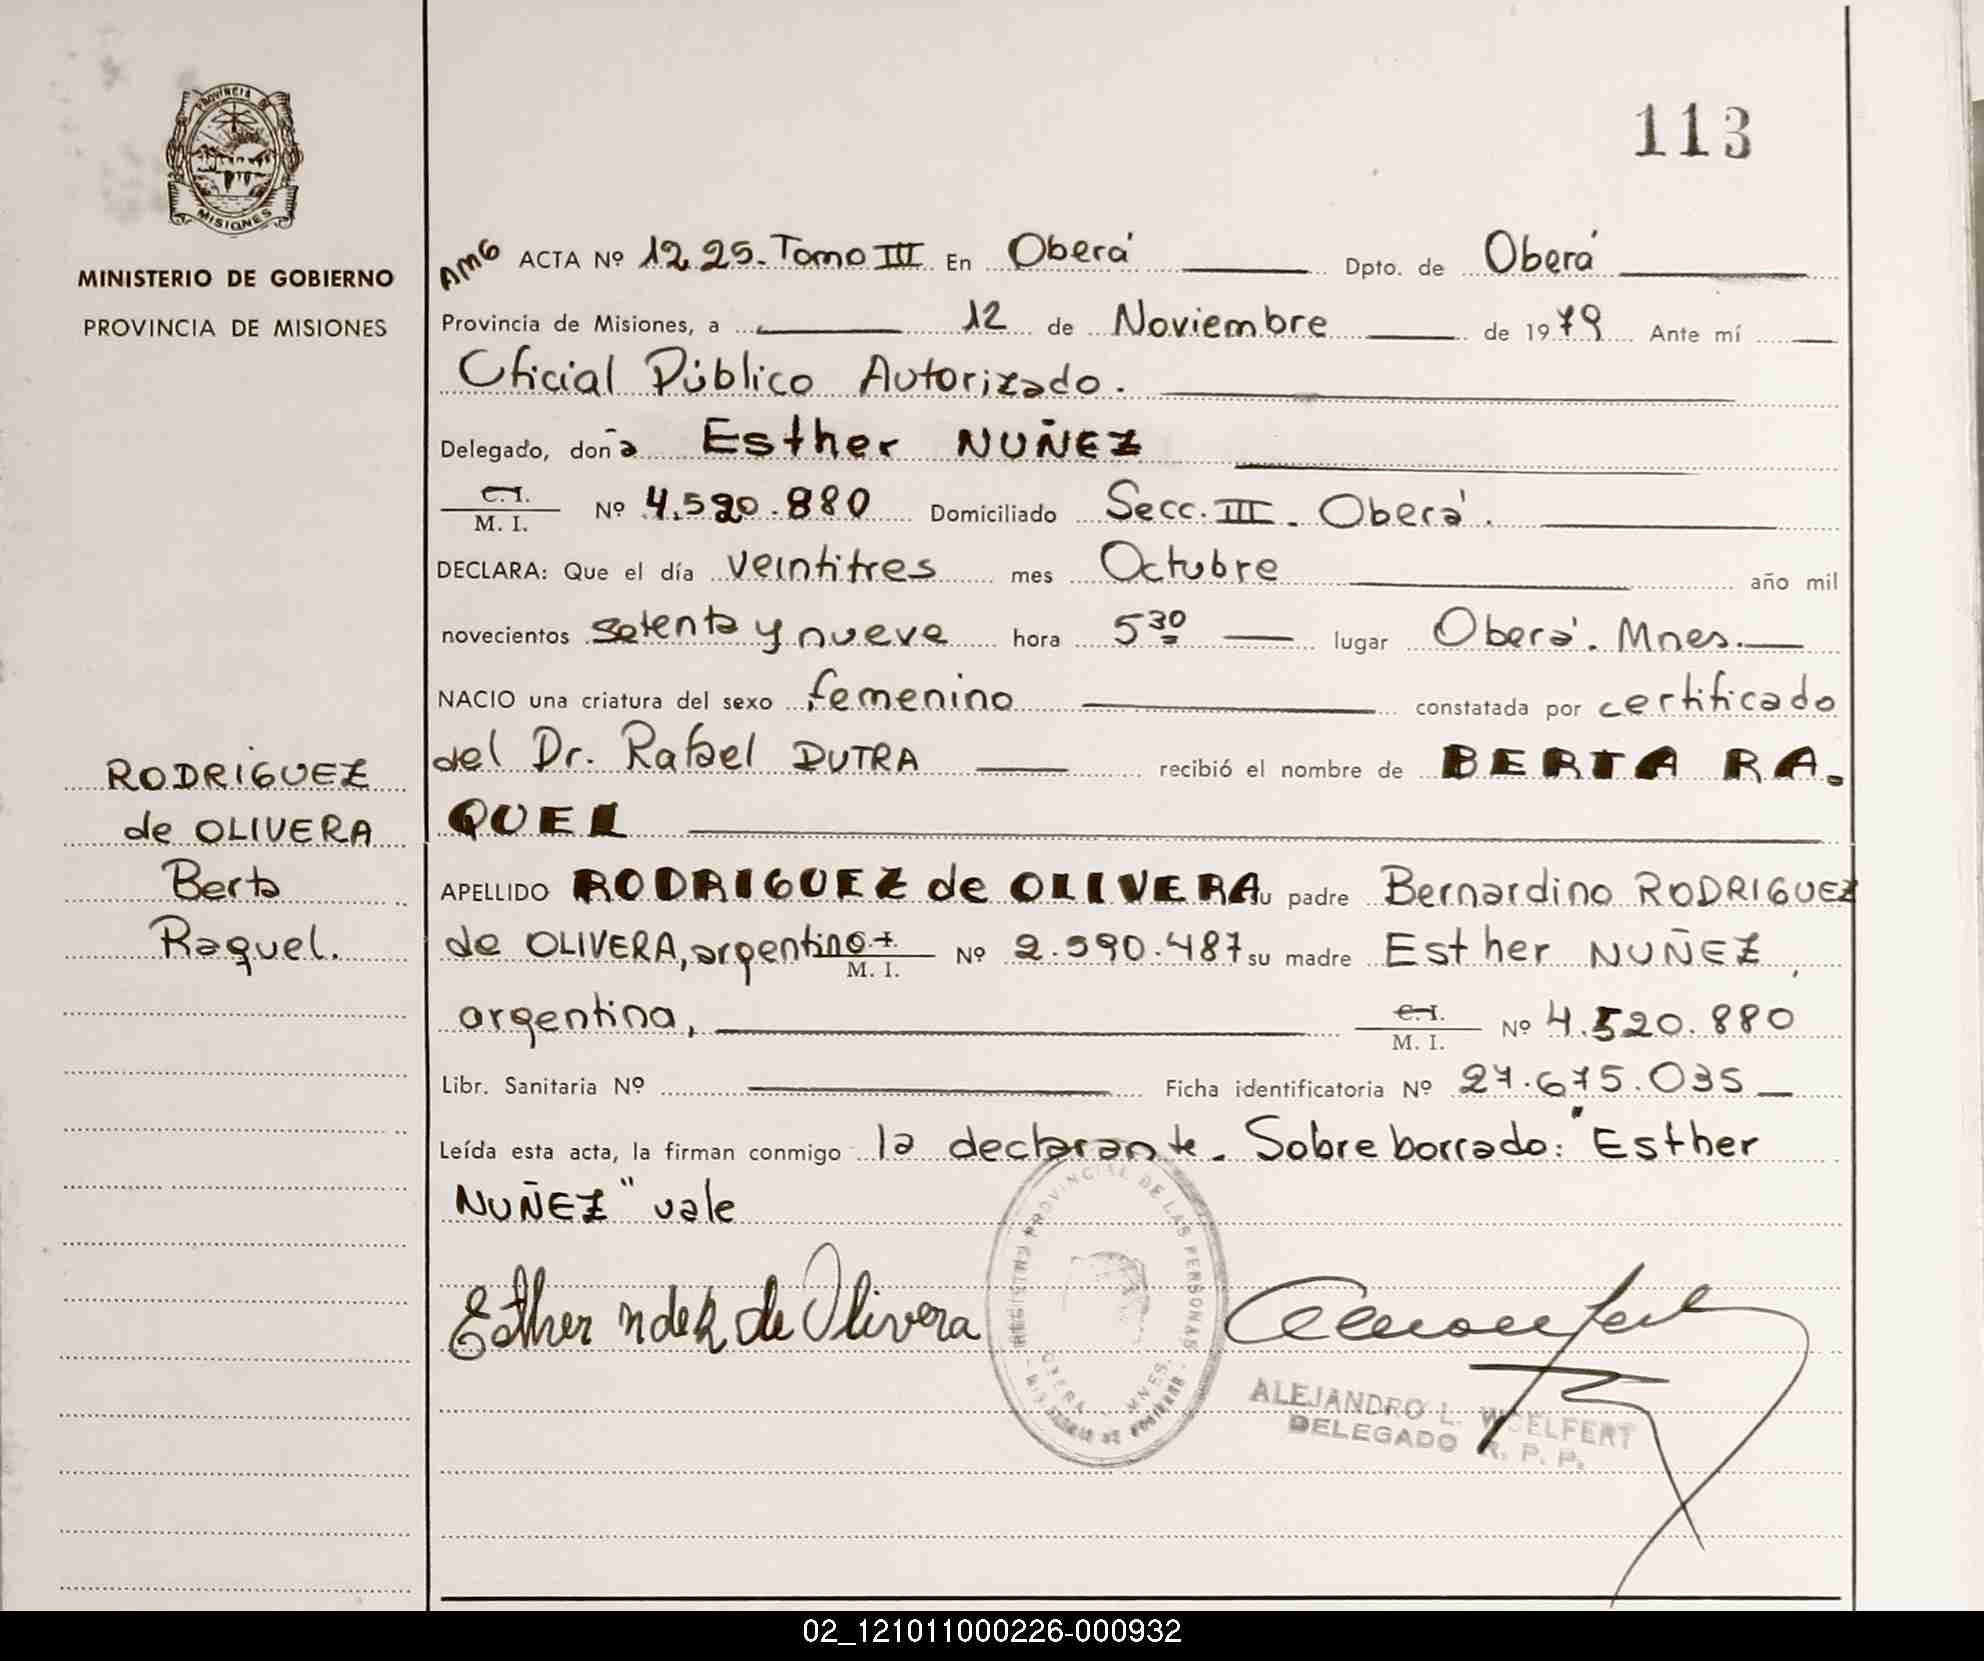 PROVINCIA DE
MISIONES
MINISTERIO DE GOBIERNO
PROVINCIA DE MISIONES
RODRIGUEZ
de OLIVERA
Berta
Raquel.
113
AMG ACTA Nº 1225. Tomo III En Oberá Dpto. de Oberá
Provincia de Misiones, a 12 de Noviembre de 1979 Ante mí
Oficial Público Autorizado.
Delegado, doña Esther NUÑEZ
C.I.
M. I. Nº 4.520.880 Domiciliado Secc. III. Oberá.
DECLARA: Que el día veintitres mes Octubre año mil
novecientos setenta y nueve hora 5 30 lugar Oberá. Mnes.
NACIO una criatura del sexo femenino constatada por certificado
del Dr. Rafael DUTRA recibió el nombre de BERTA RA-
QUEL
APELLIDO RODRIGUEZ de OLIVERA su padre Bernardino RODRIGUEZ
de OLIVERA, argentino M. I. Nº 2.590.487 su madre Esther NUÑEZ,
argentina, C.I.
M. I. Nº 4.520.880
Libr. Sanitaria Nº Ficha identificatoria Nº 27.675.035
Leída esta acta, la firman conmigo la declarante. Sobre borrado: "Esther
NUÑEZ" vale
Esther de Olivera
REGISTRO PROVINCIAL DE LAS PERSONAS
OBERA - MNES.
MINISTERIO DE GOBIERNO
ALEJANDRO L. WOELFERT
DELEGADO R. P. P.
02_121011000226-000932